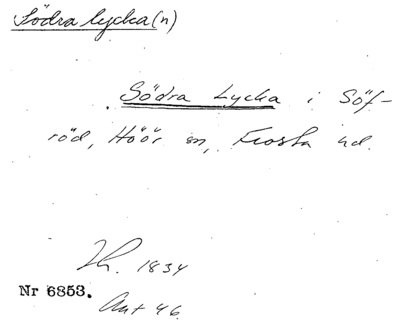 Södra lycka(n)
Södra Lycka i Söf-
röd, Höör sn, Frosta hd.
Lh. 1834
Nr 6853.
Ant 46.